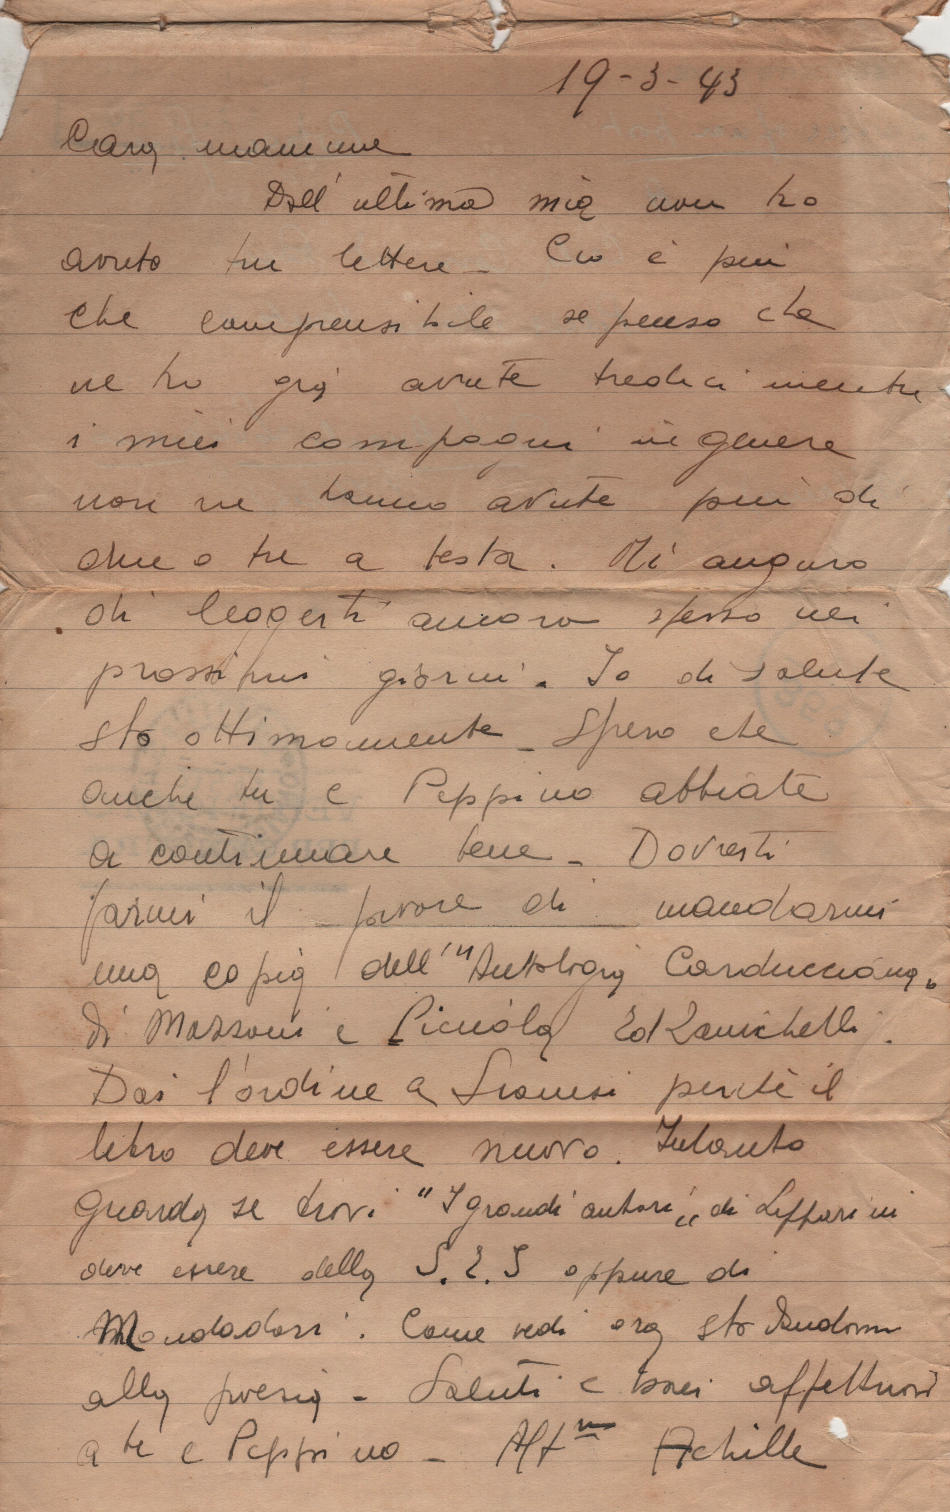 19-3-43
Cara mamma
Dall'ultima mia non ho
avuto tue lettere - Ciò è più
che comprensibile se penso che
ne ho già avute tredici mentre
i miei compagni in genere
non ne hanno avute più di
due o tre a testa. Mi auguro
di leggerti ancora spesso nei
prossimi giorni. Io di salute
sto ottimamente - Spero che
anche tu e Peppino abbiate
a continuare bene - Dovresti
farmi il favore di mandarmi
una copia dell'"Antologia Carducciana"
di Mazzoni e Picciola Ed Zanichelli.
Dai l'ordine a perchè il
libro deve essere nuovo. Intanto
guarda se trovi "I grandi autori" di
deve essere della S.E.I oppure di
Mondadori. Come vedi ora sto dandomi
alla poesia - Saluti e baci affettuosi
a te e Peppino - Aff.mo Achille